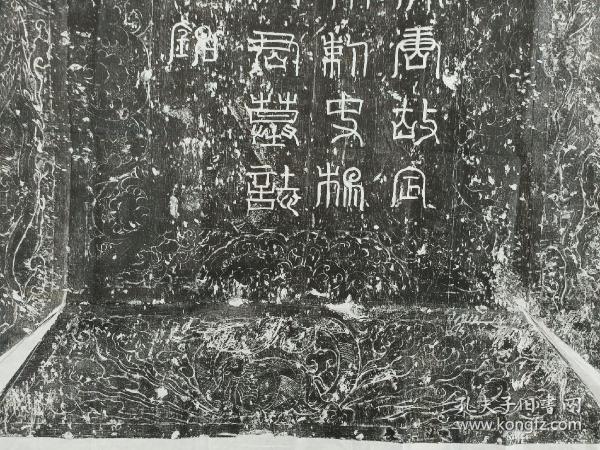 唐故定
刺史杨
君墓誌
铭
孔夫子旧书网
www.kongfz.com